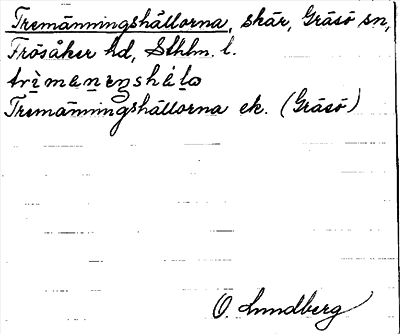 Tremänningshällorna, skär, Gräsö sn,
Frösåker hd, Sthlm. l.
trìmeneŋshálo
Tremänningshällorna ek. (Gräsö)
O. Lundberg